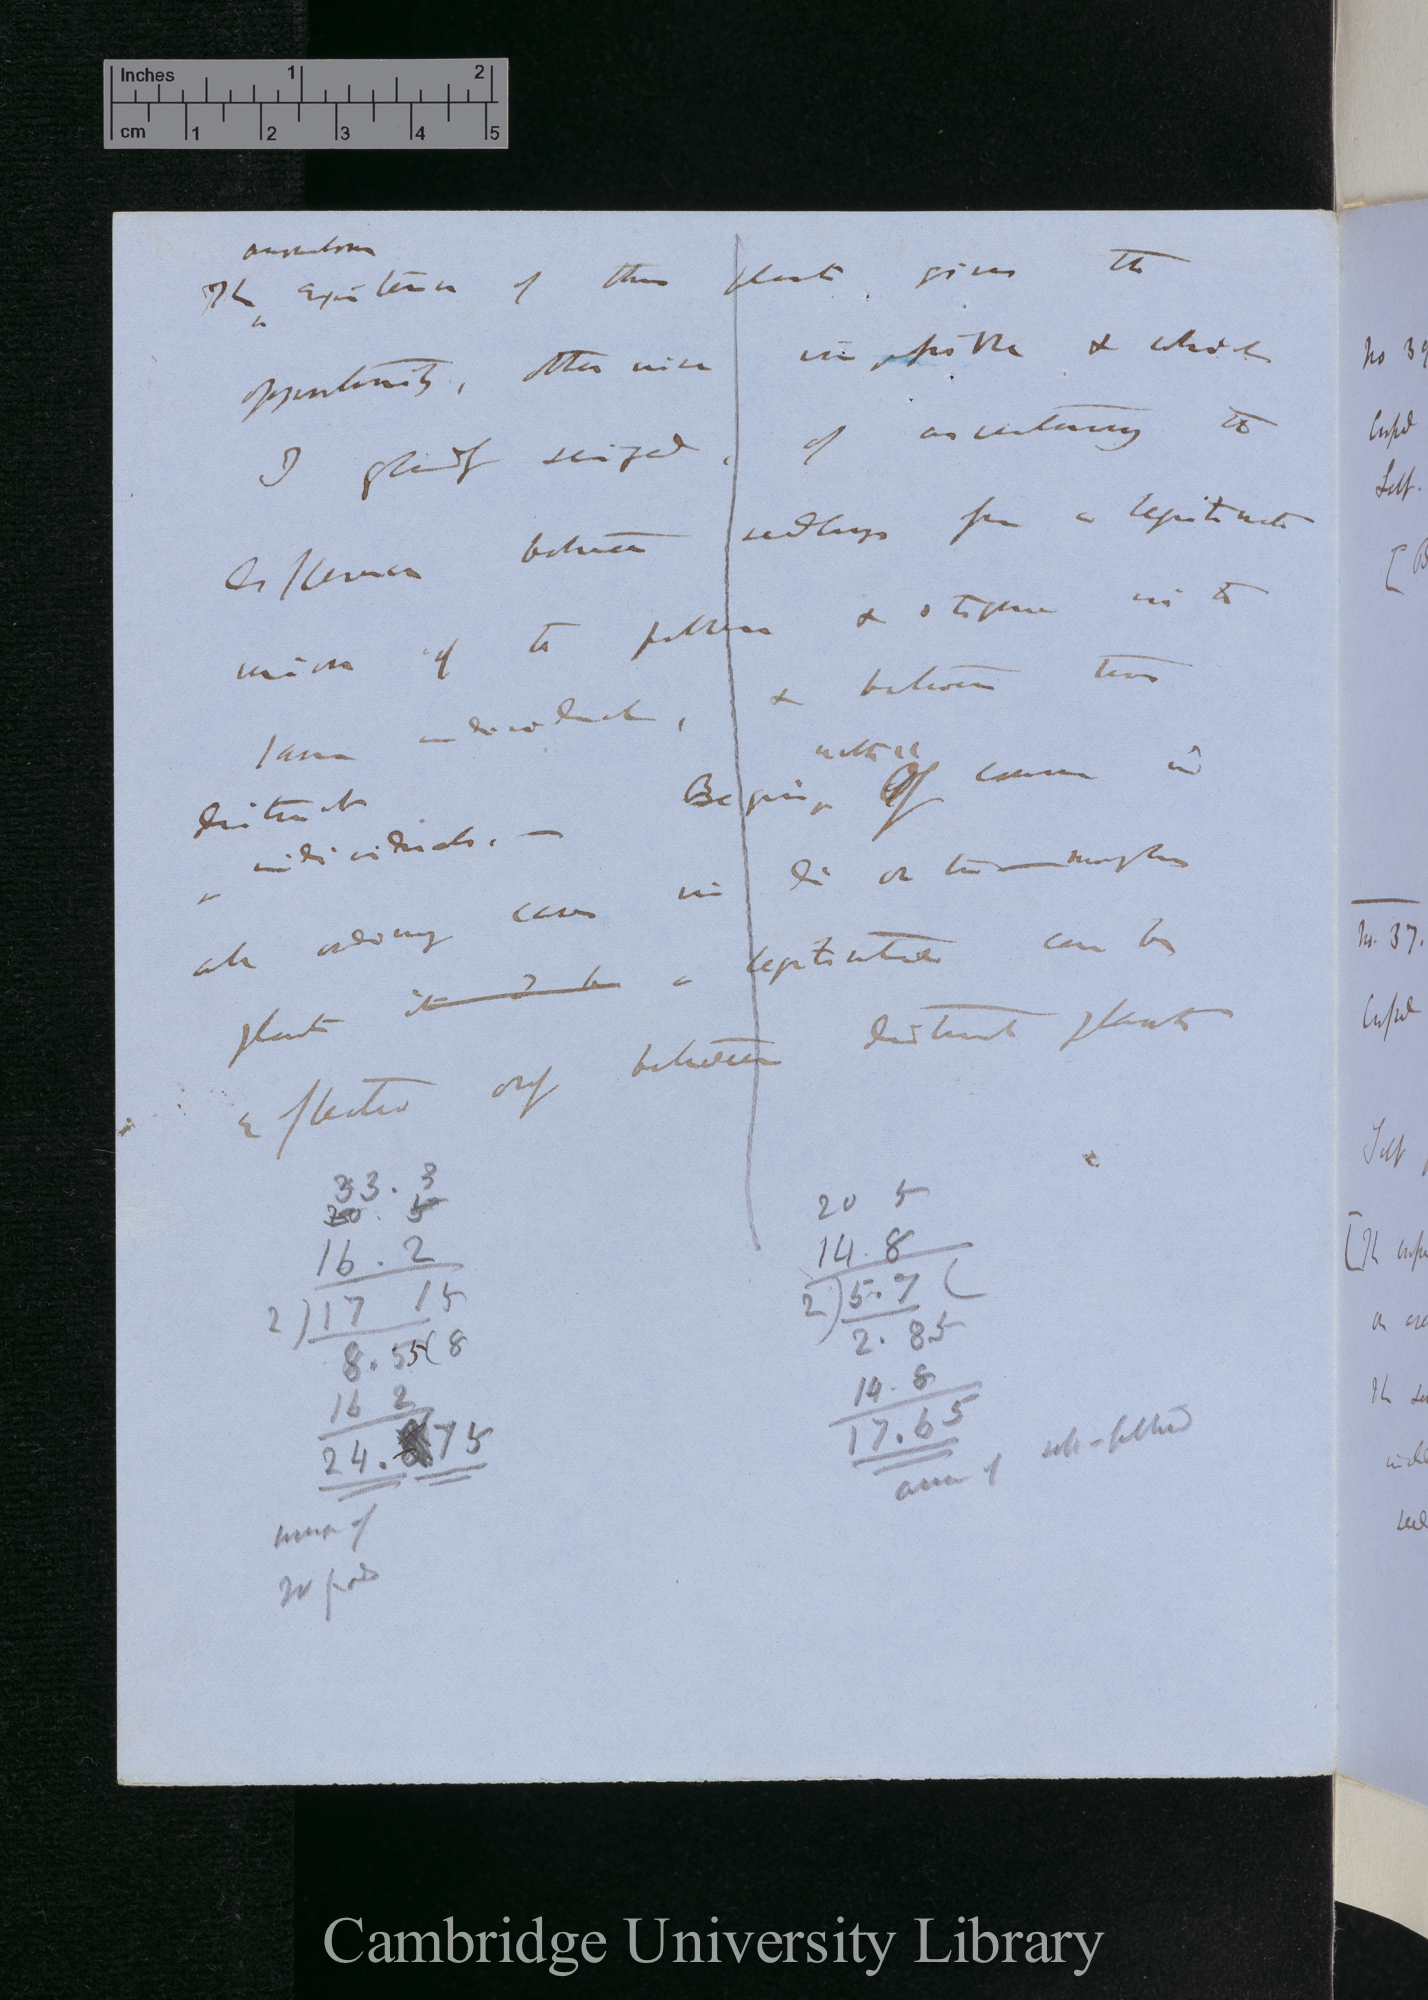 Inches 1 2
cm 1 2 3 4 5
anomalous
The existence of these plants gives the
opportunity, otherwise impossible & which
I gladly seized, of ascertaining the
difference between seedlings from a legitimate
union of the pollen & stigma in the
same individual, & between two
distinct individuals. —
Begin, Of course in
all ordinary cases in di or tri-morphic
plants it a legitimate can be
effected only between distinct plants
33.3
30.5
16.2
2) 17 15
8.55(8
16 2
24.75
mean of
20 pods
20 5
14.8
2) 5.7 (
2.85
14.8
17.65
mean of self-fertilised
No 39
Self.
No. 37.
Self
[The
The